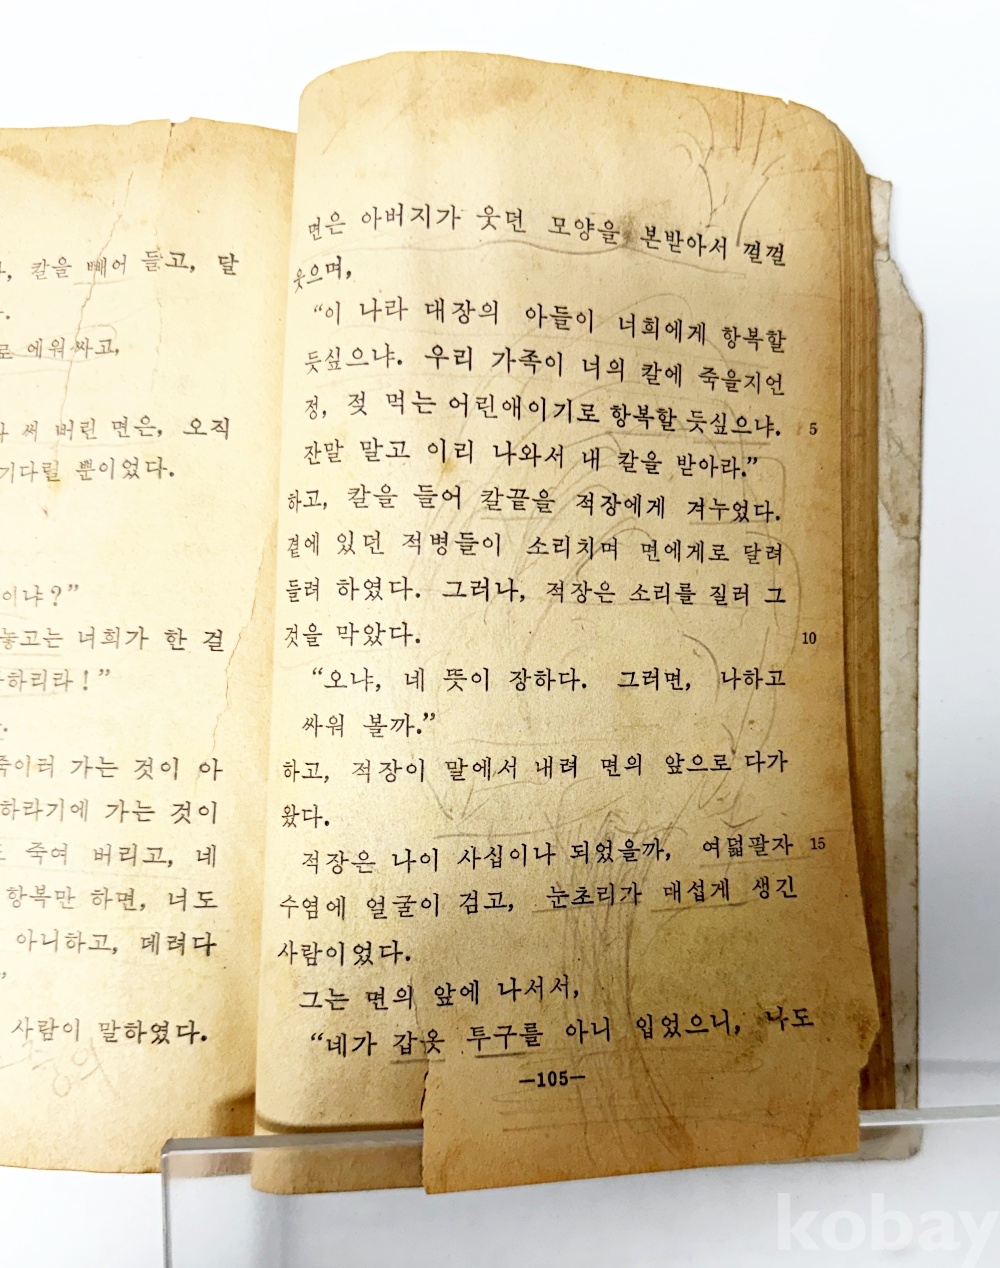 , 칼을 빼어 들고, 달
.
로 에워싸고,
써 버린 면은, 오직
기다릴 뿐이었다.
이냐?”
놓고는 너희가 한 걸
하리라!”
.
죽이러 가는 것이 아
하라기에 가는 것이
죽여 버리고, 네
항복만 하면, 너도
아니하고, 데려다
”
사람이 말하였다.
면은 아버지가 웃던 모양을 본받아서 껄껄
웃으며,
“이 나라 대장의 아들이 너희에게 항복할
듯싶으냐. 우리 가족이 너의 칼에 죽을지언
정, 젖 먹는 어린애이기로 항복할 듯싶으냐. 5
잔말 말고 이리 나와서 내 칼을 받아라.”
하고, 칼을 들어 칼끝을 적장에게 겨누었다.
곁에 있던 적병들이 소리치며 면에게로 달려
들려 하였다. 그러나, 적장은 소리를 질러 그
것을 막았다. 10
“오냐, 네 뜻이 장하다. 그러면, 나하고
싸워 볼까.”
하고, 적장이 말에서 내려 면의 앞으로 다가
왔다.
적장은 나이 사십이나 되었을까, 여덟팔자 15
수염에 얼굴이 검고, 눈초리가 매섭게 생긴
사람이었다.
그는 면의 앞에 나서서,
“네가 갑옷 투구를 아니 입었으니, 나도
—105—
kobay